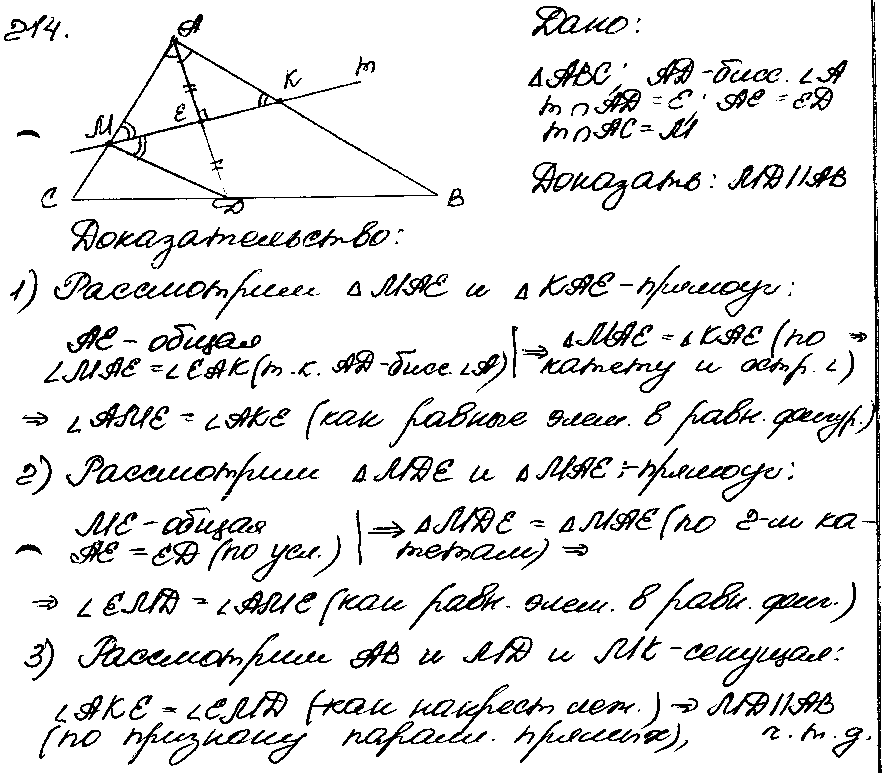 214.
Дано:
△ABC; AD-бисс. ∠A
m∩AD = E; AE = ED
m∩AC = M
Доказать: MD∥AB
A
K
m
E
M
C
D
B
Доказательство:
1) Рассмотрим △MAE и △KAE-прямоуг:
AE - общая
∠MAE = ∠EAK (т.к. AD-бисс. ∠A) | ⇒ △MAE = △KAE (по ⇒
катету и остр. ∠)
⇒ ∠AME = ∠AKE (как равные элем. в равн. фигур.)
2) Рассмотрим △MDE и △MAE:-прямоуг:
ME - общая
AE = ED (по усл.) | ⇒ △MDE = △MAE (по 2-м ка-
тетам) ⇒
⇒ ∠EMD = ∠AME (как равн. элем. в равн. фиг.)
3) Рассмотрим AB и MD и MK-секущая:
∠AKE = ∠EMD (как накрест леж.) ⇒ MD∥AB
(по признаку паралл. прямых), ч.т.д.